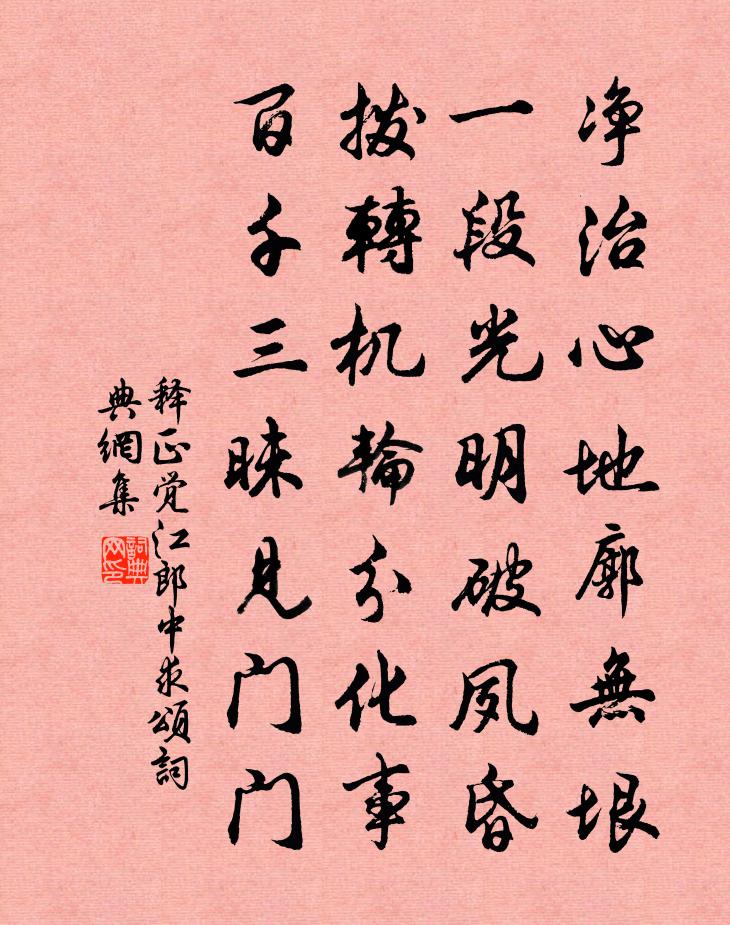 净治心地廓無垠
一段光明破夙昏
拨轉机輪分化事
百千三昧见门门
释正觉江郎中求頌詞
典網集
詞典
网印